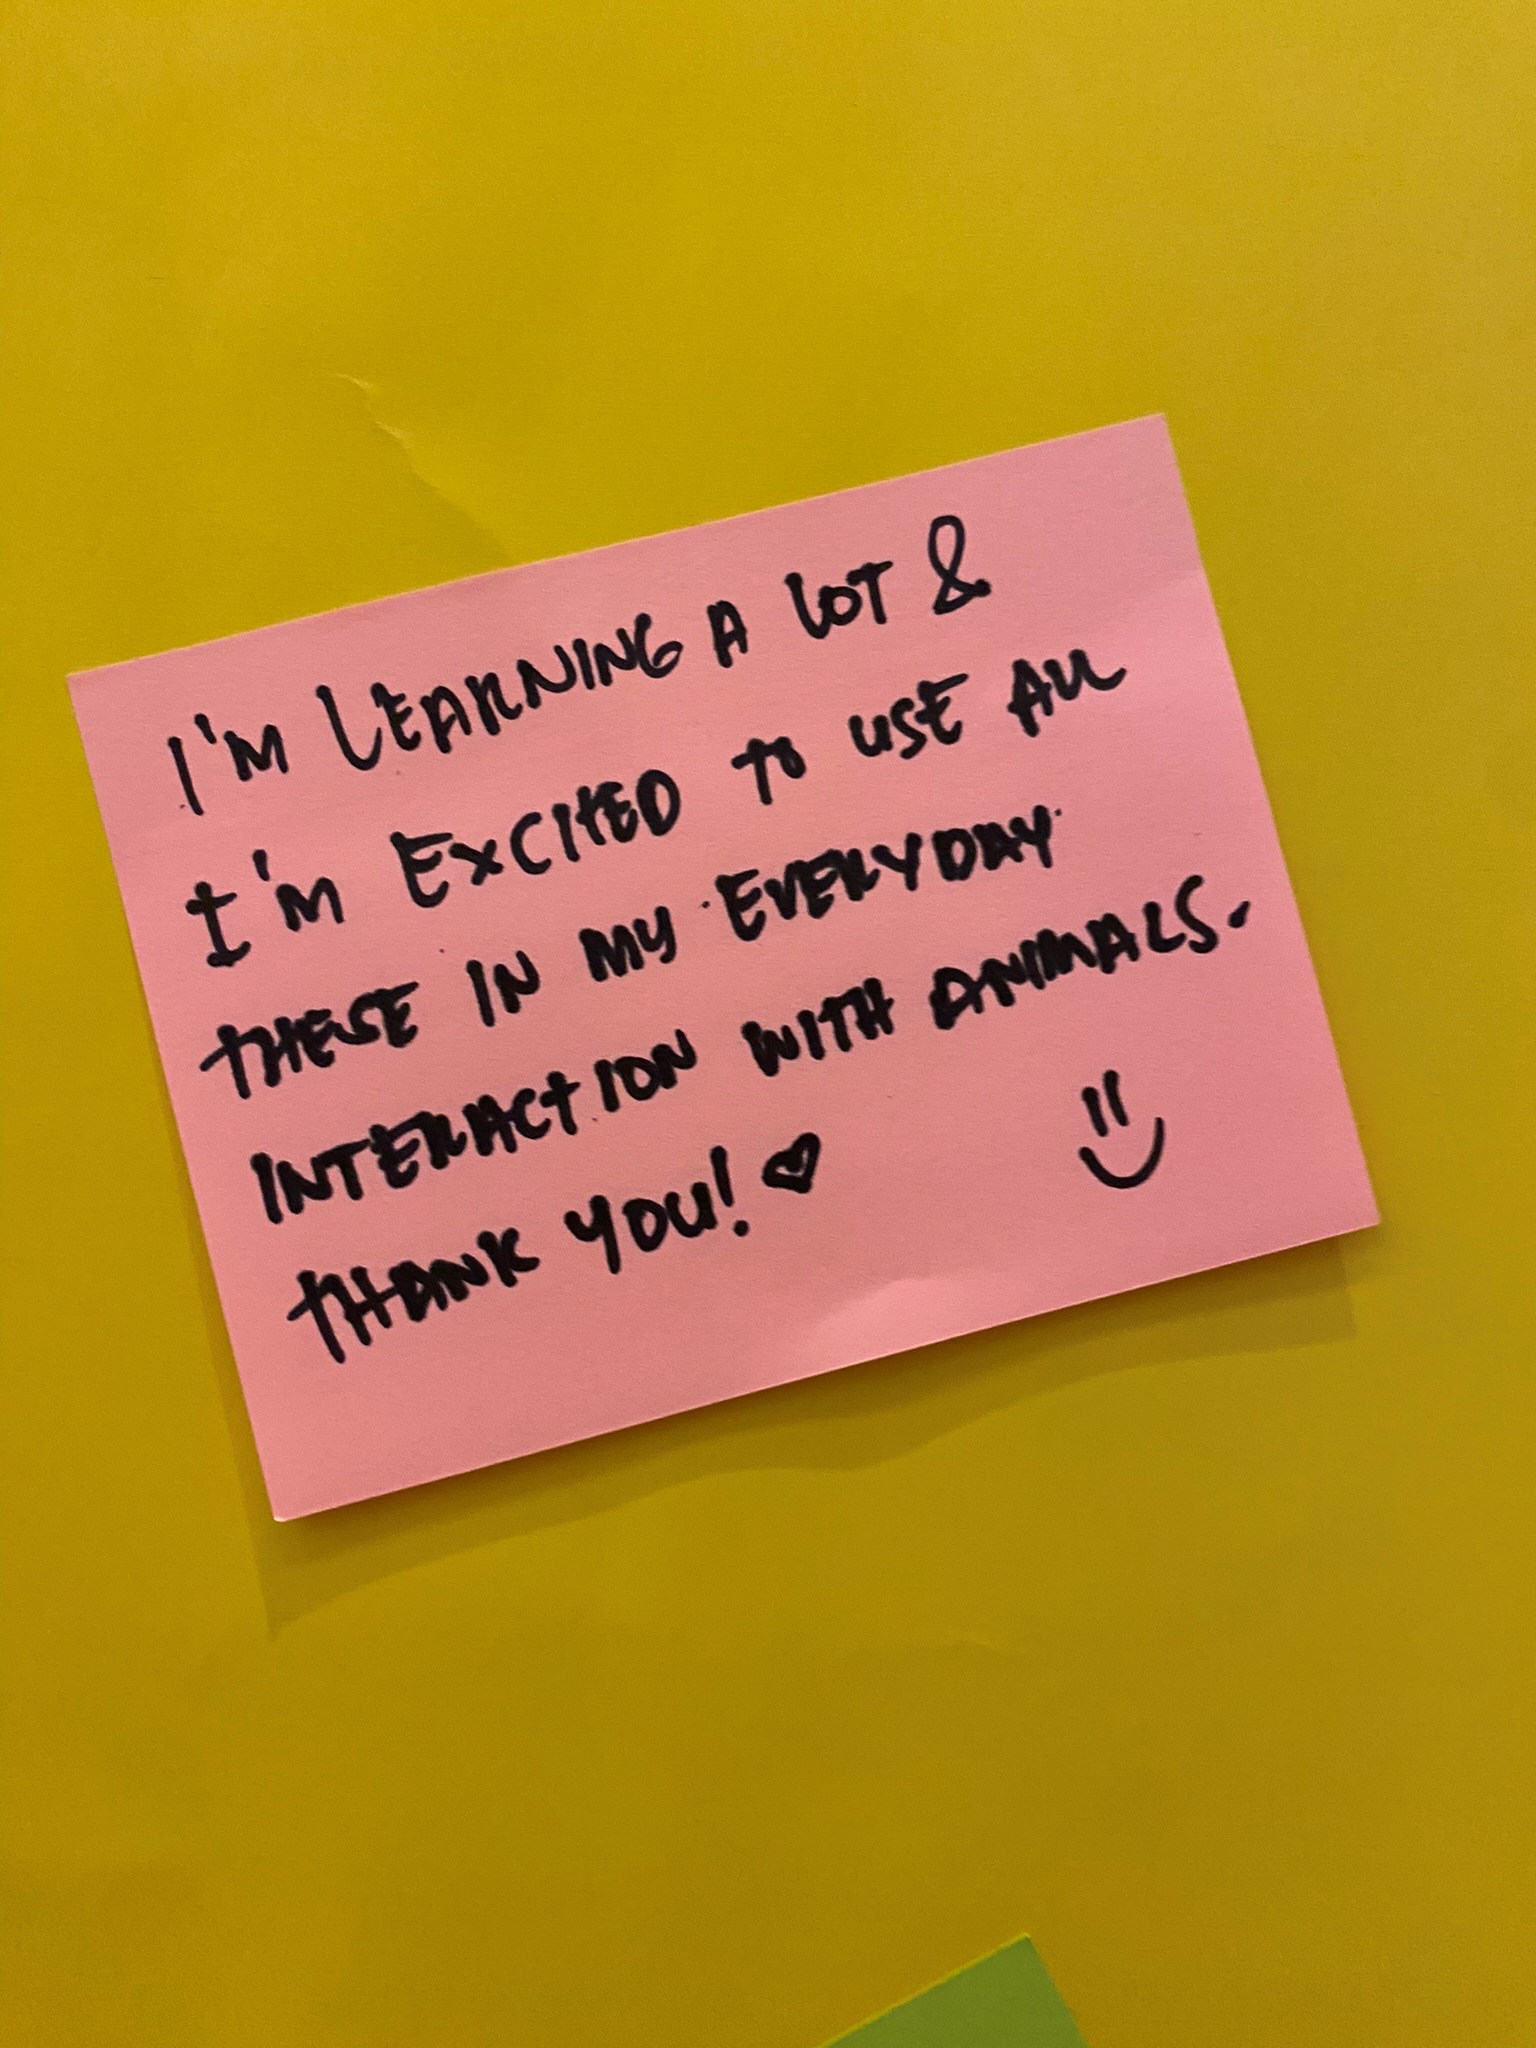 I'M LEARNING A LOT &
I'M EXCITED TO USE ALL
THESE IN MY EVERYDAY
INTERACTION WITH ANIMALS.
THANK YOU! ♡